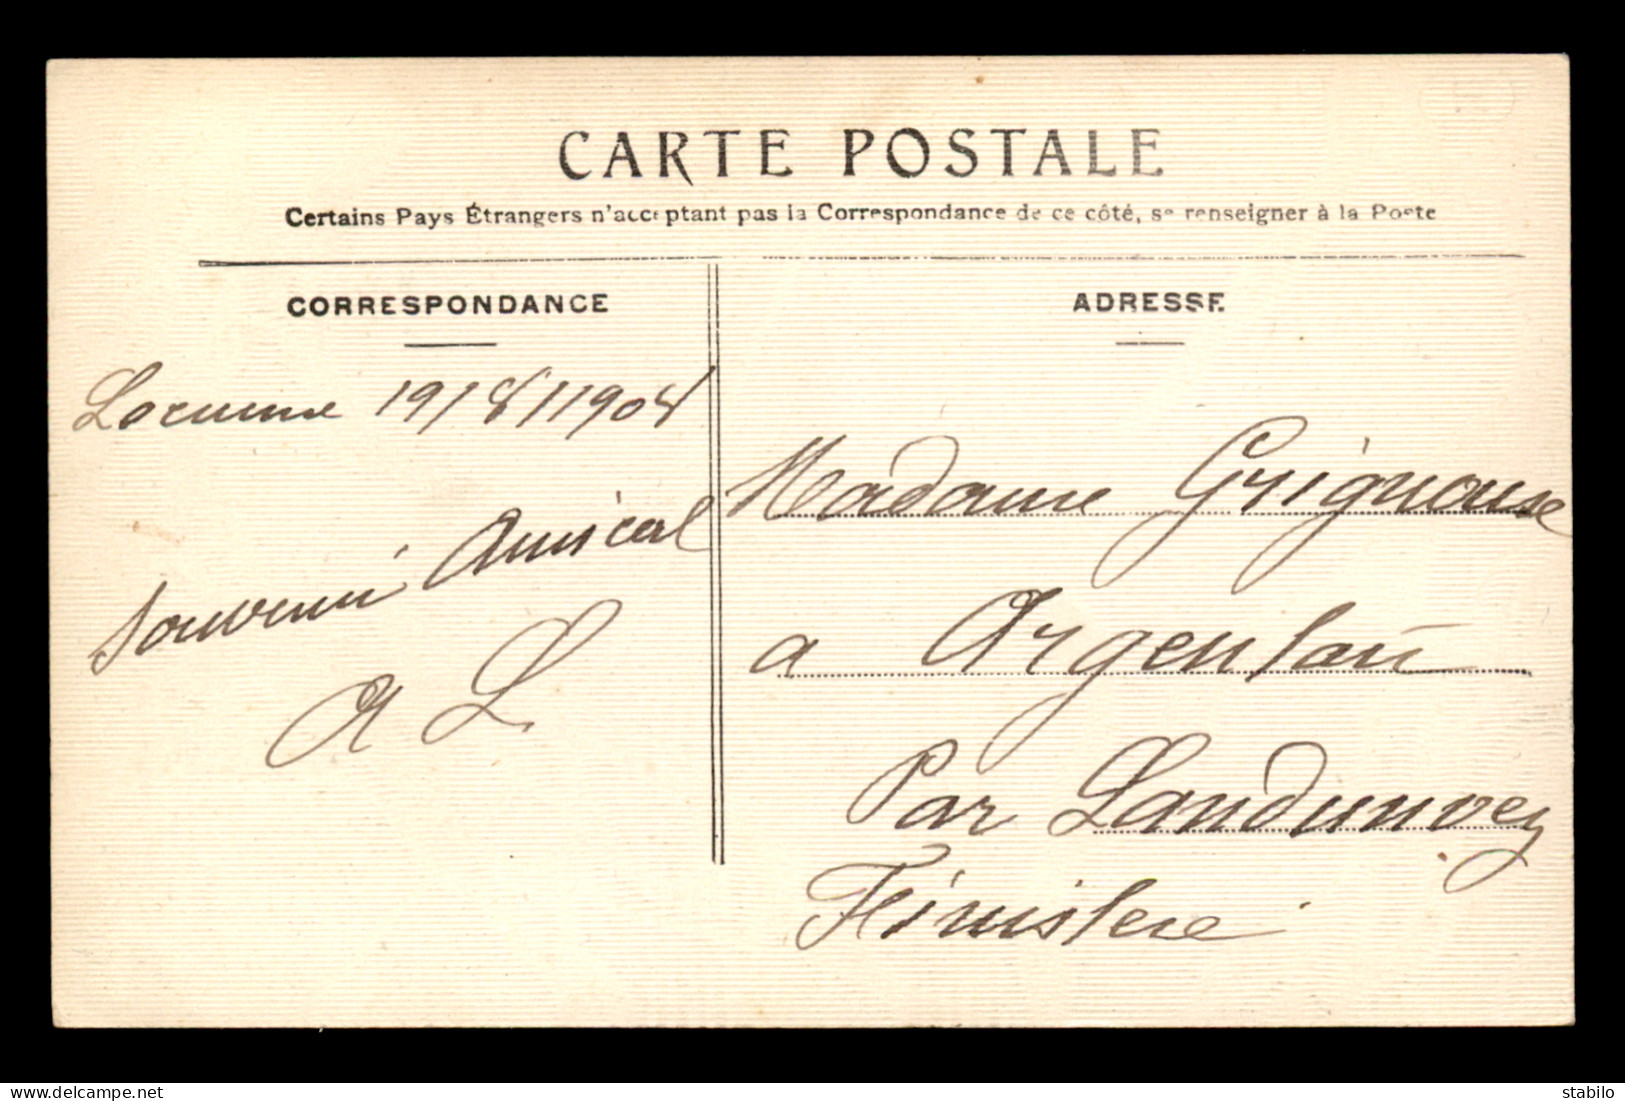 CARTE POSTALE
Certains Pays Étrangers n'acceptant pas la Correspondance de ce côté, se renseigner à la Poste
CORRESPONDANCE
ADRESSE
19/8/1908
Souvenir Amical
A L
Madame Grignouse
a Argentan
Par Landunvez
Finistere
delcampe.net
stabilo